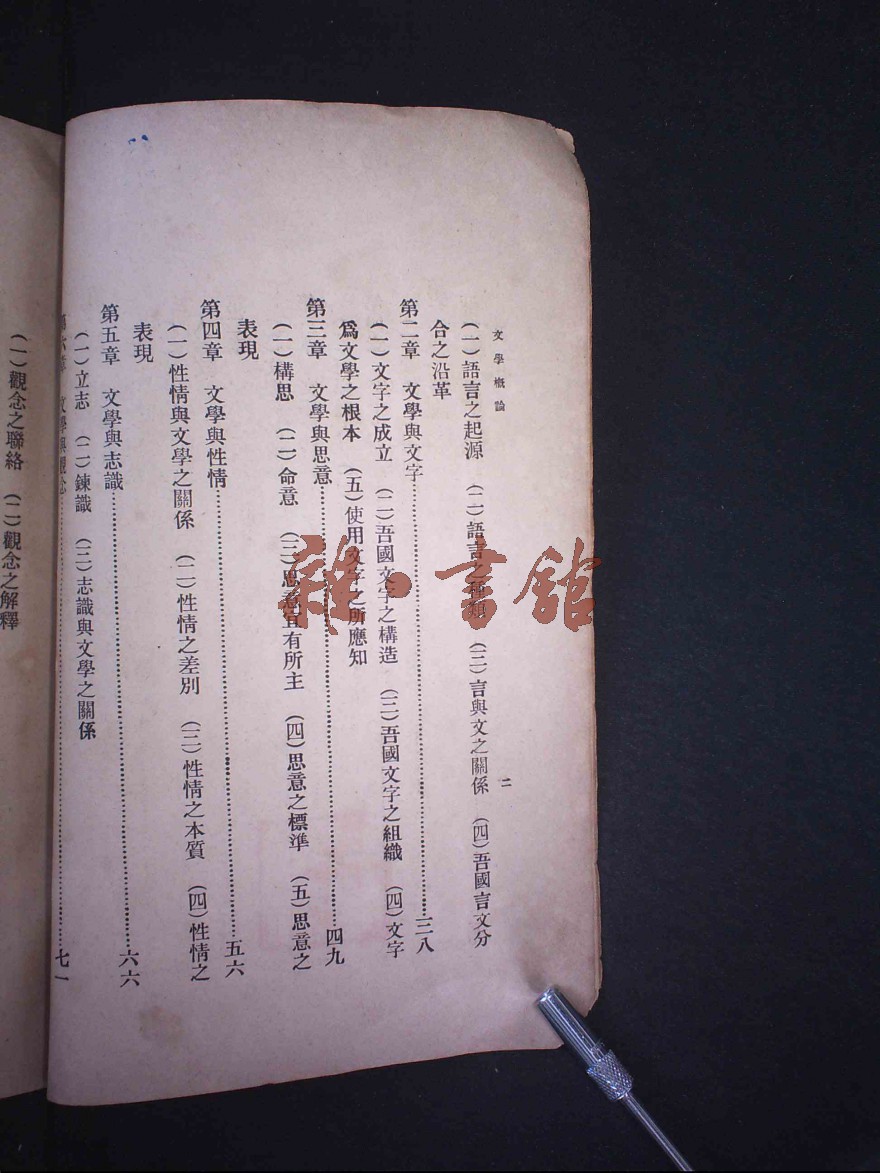 文學概論
二
(一)語言之起源 (二)語言之種類 (三)言與文之關係 (四)吾國言文分
合之沿革
第二章 文學與文字……三八
(一)文字之成立 (二)吾國文字之構造 (三)吾國文字之組織 (四)文字
爲文學之根本 (五)使用文字之所應知
第三章 文學與思意……四九
(一)構思 (二)命意 (三)思意宜有所主 (四)思意之標準 (五)思意之
表現
第四章 文學與性情……五六
(一)性情與文學之關係 (二)性情之差別 (三)性情之本質 (四)性情之
表現
第五章 文學與志識……六六
(一)立志 (二)鍊識 (三)志識與文學之關係
第六章 文學與觀念……七一
(一)觀念之聯絡 (二)觀念之解釋
雜·書館